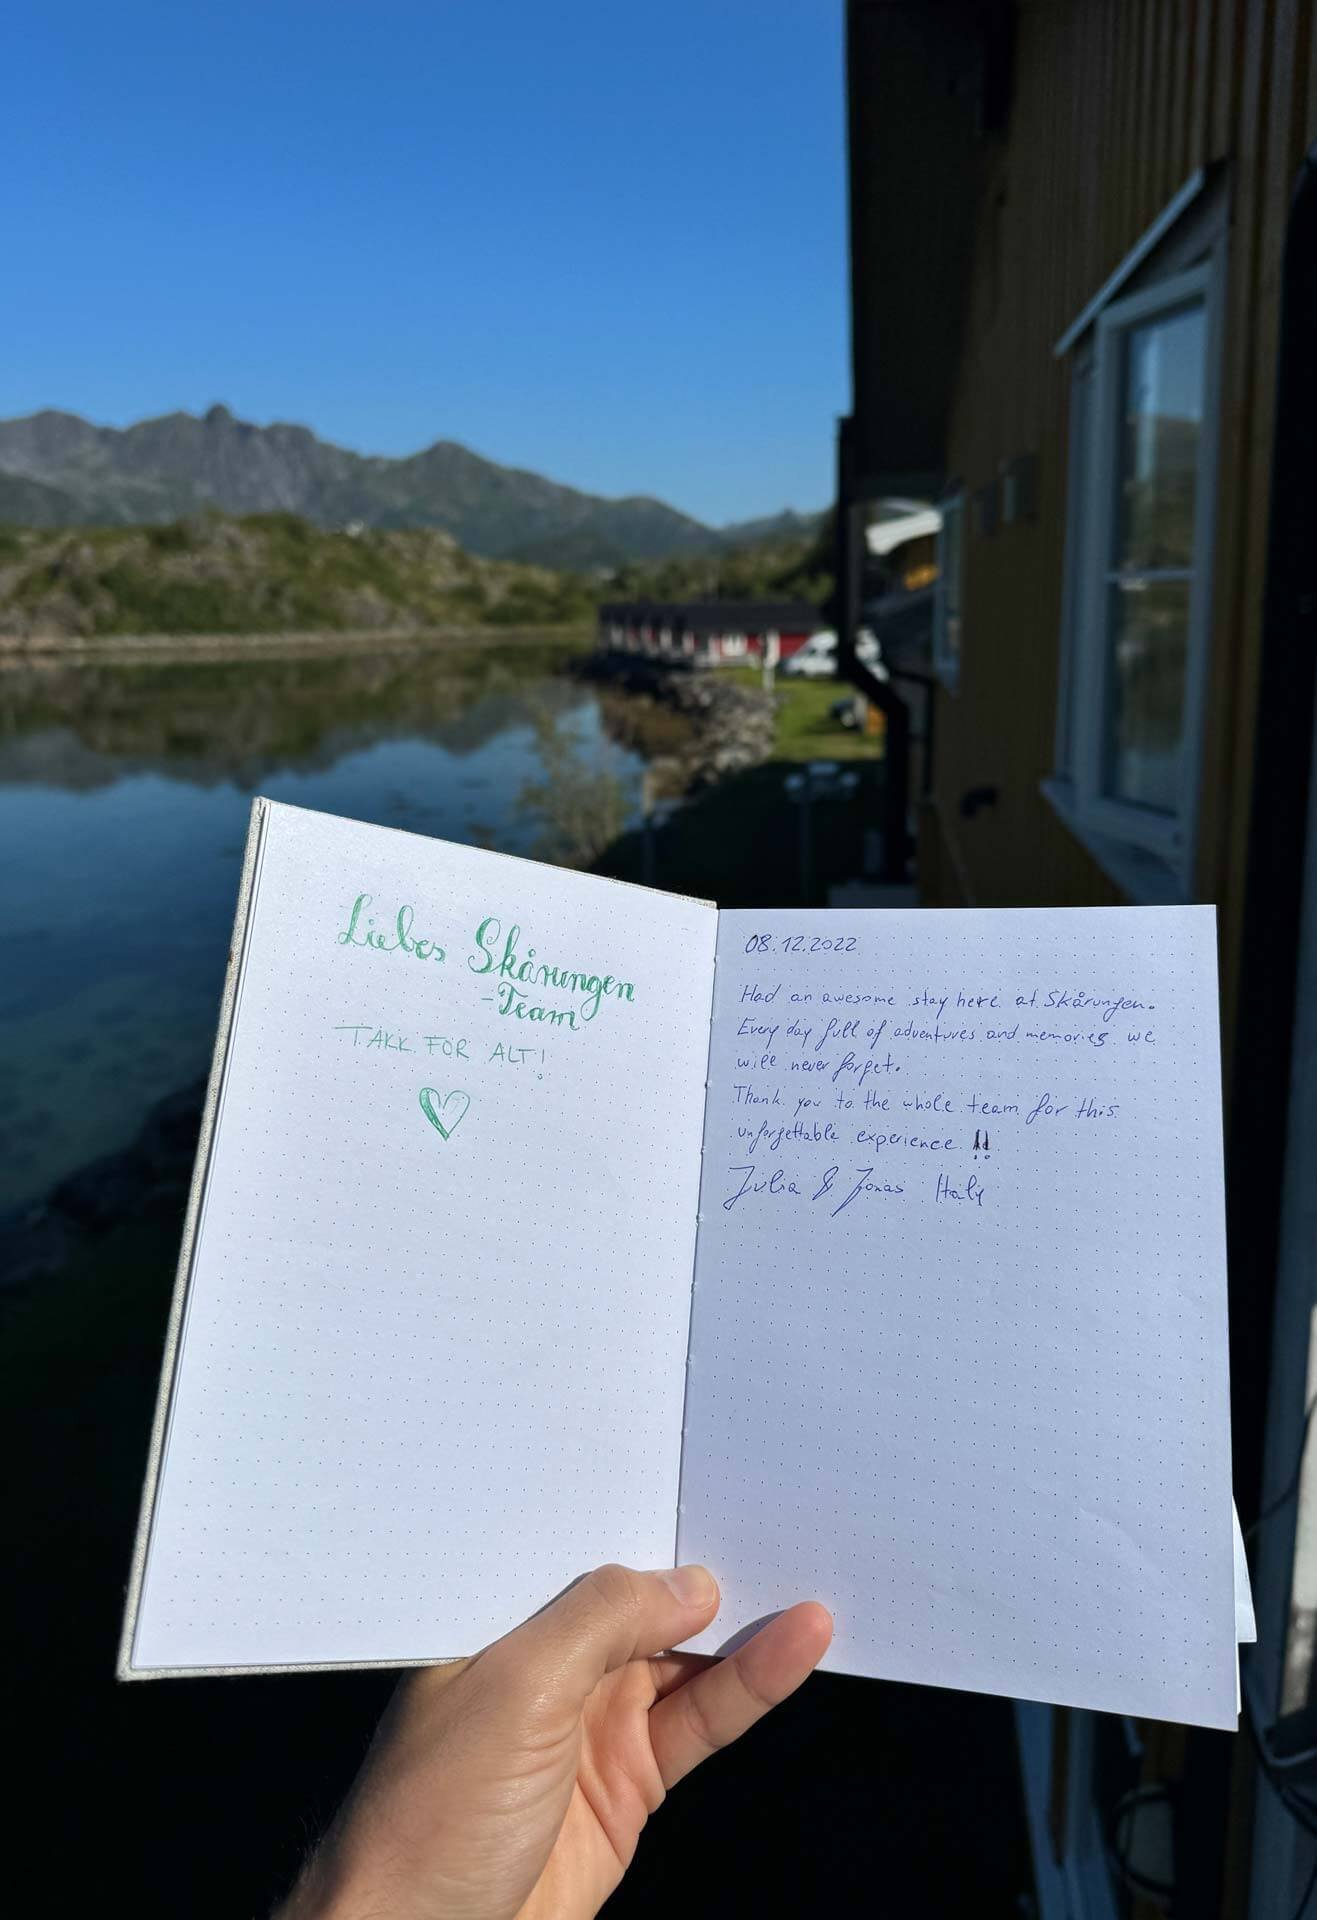 Liebes Skårungen
-Team
TAKK FOR ALT!
08.12.2022
Had an awesome stay here at Skårungen.
Every day full of adventures and memories we
will never forget.
Thank you to the whole team for this
unforgettable experience !!
Julia & Jonas Italy